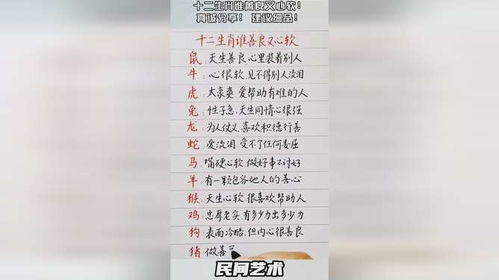 十二生肖谁善良又心软!
真诚分享! 建议细品!
十二生肖谁善良又心软
鼠:天生善良,心里装着别人
牛:心很软,见不得别人流泪
虎:太豪爽,爱帮助有难的人
兔:性子急,天生同情心很强
龙:为人仗义,喜欢积德行善
蛇:爱流泪,受不了任何委屈
马:嘴硬心软,做好事不讨好
羊:有一颗包容他人的善心
猴:天生心软,很喜欢帮助人
鸡:忠厚老实,有多少力出多少力
狗:表面冷酷,但内心很善良
猪:做善
民间艺术